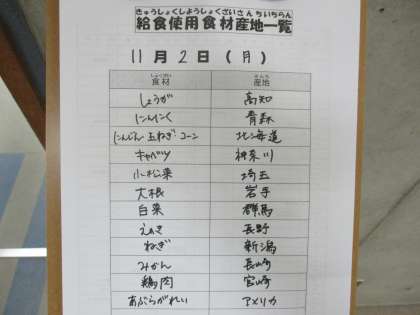 きゅうしょくしようしょくざいさんちいちらん
給食使用食材産地一覧
11月2日(月)
しょくざい さんち
食材 産地
しょうが 高知
にんにく 青森
にんじん 玉ねぎ コーン 北海道
キャベツ 神奈川
小松菜 埼玉
大根 岩手
白菜 群馬
えのき 長野
ねぎ 新潟
みかん 長崎
鶏肉 宮崎
あぶらがれい アメリカ